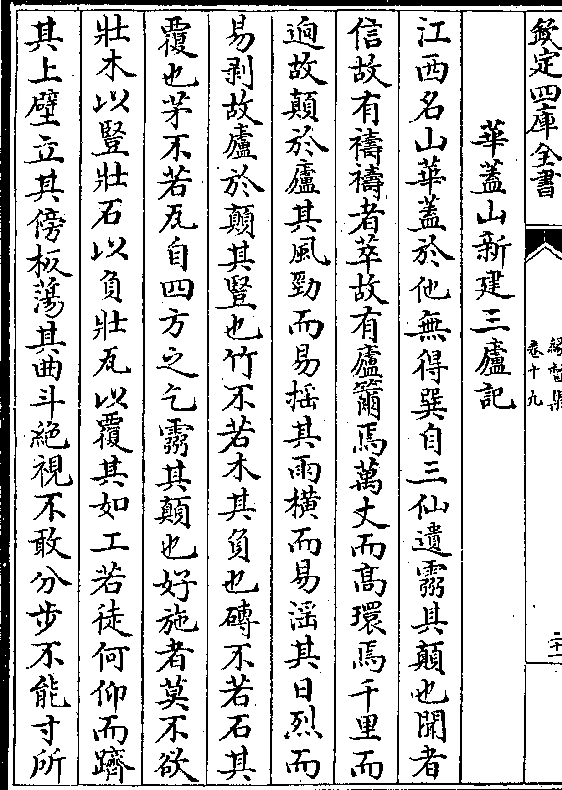 欽定四庫全書
縁督集
卷十九
二十一
華蓋山新建三廬記
江西名山華蓋於他無得巽自三仙遺靈其顛也聞者
信故有禱禱者萃故有廬簫焉萬丈而髙環焉千里而
逈故顛於廬其風勁而易揺其雨横而易滛其日烈而
易剥故廬於顛其豎也竹不若木其負也磚不若石其
覆也茅不若瓦自四方之乞靈其顛也好施者莫不欲
壯木以豎壯石以負壯瓦以覆其如工若徒何仰而躋
其上壁立其傍板蕩其曲斗絶視不敢分步不能寸所